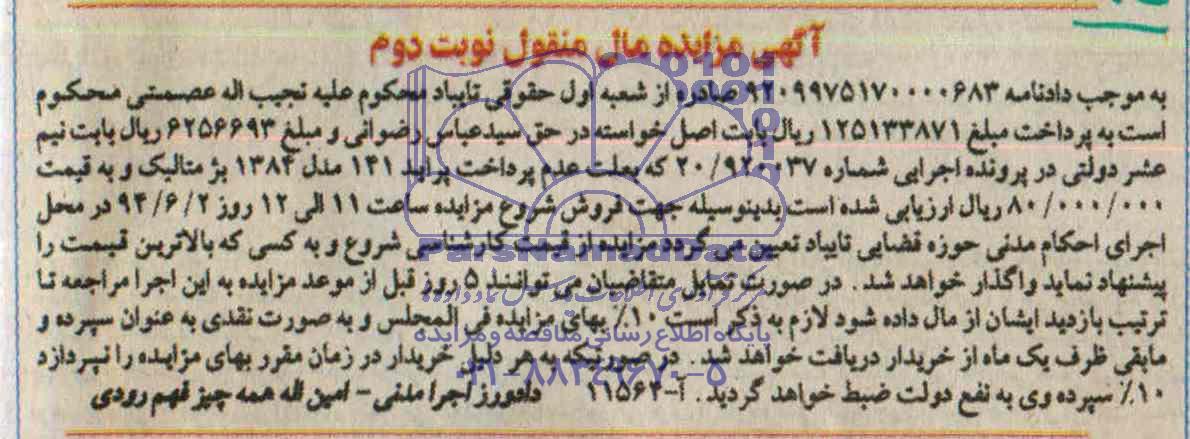 آگهی مزایده مال منقول نوبت دوم
به موجب دادنامه ۹۲۰۹۹۷۵۱۷۰۰۰۰۶۸۳ صادره از شعبه اول حقوقی تایباد محکوم علیه نجیب اله عصمتی محکوم
است به پرداخت مبلغ ۱۲۵۱۳۳۸۷۱ ریال بابت اصل خواسته در حق سیدعباس رضوانی و مبلغ ۶۲۵۶۶۹۳ ریال بابت نیم
عشر دولتی در پرونده اجرایی شماره ۲۰/۹۲۰۰۳۷ که بعلت عدم پرداخت پراید ۱۴۱ مدل ۱۳۸۴ بژ متالیک و به قیمت
۸۰/۰۰۰/۰۰۰ ریال ارزیابی شده است بدینوسیله جهت فروش شروع مزایده ساعت ۱۱ الی ۱۲ روز ۹۴/۶/۲ در محل
اجرای احکام مدنی حوزه قضایی تایباد تعیین می گردد مزایده از قیمت کارشناسی شروع و به کسی که بالاترین قیمت را
پیشنهاد نماید واگذار خواهد شد . در صورت تمایل متقاضیان می توانند ۵ روز قبل از موعد مزایده به این اجرا مراجعه تا
ترتیب بازدید ایشان از مال داده شود لازم به ذکر است ۱۰٪ بهای مزایده فی المجلس و به صورت نقدی به عنوان سپرده و
مابقی ظرف یک ماه از خریدار دریافت خواهد شد . در صورتیکه به هر دلیل خریدار در زمان مقرر بهای مزایده را نپردازد
۱۰٪ سپرده وی به نفع دولت ضبط خواهد گردید . آ-۱۱۵۶۴ دادورز اجرا مدنی - امین اله همه چیز فهم رودی
ParsNamadData
پایگاه اطلاع رسانی مناقصه و مزایده
۰۲۱-۸۸۳۴۹۶۷۰-۵